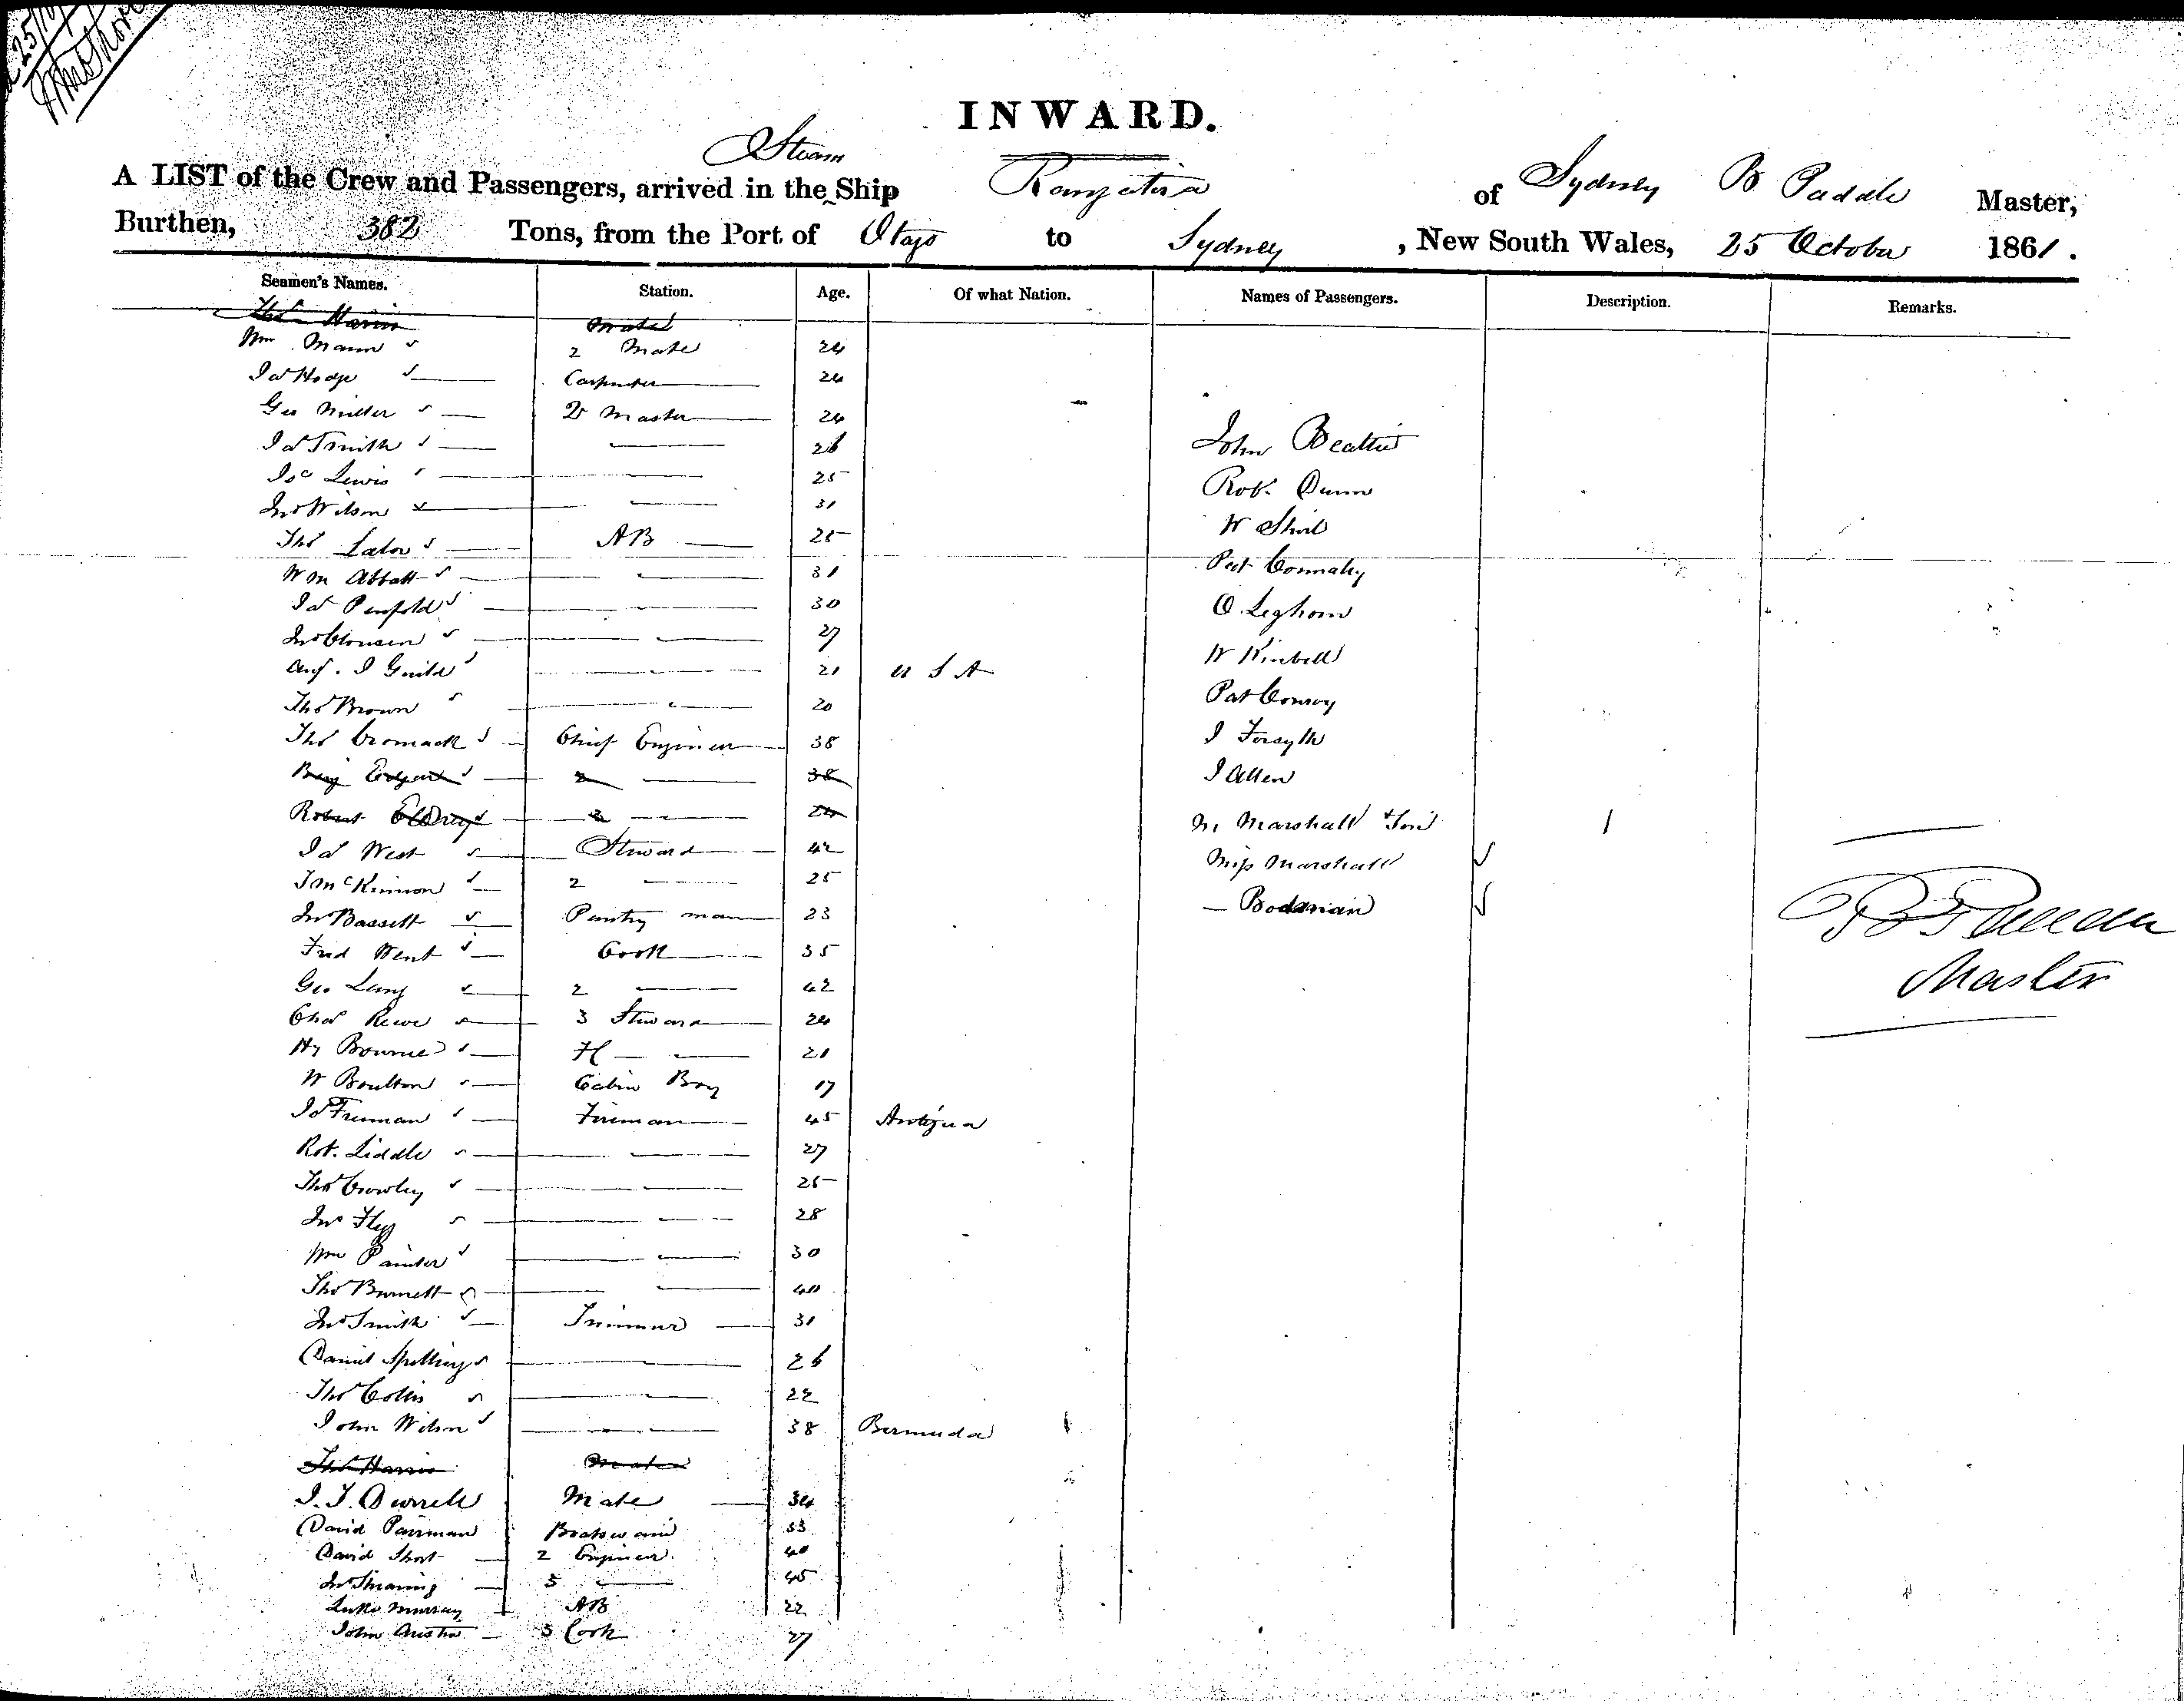 INWARD.
A LIST of the Crew and Passengers, arrived in the Steam Ship Rangatira of Sydney B Paddle Master,
Burthen, 382 Tons, from the Port of Otago to Sydney, New South Wales, 25 October 1861.
Seamen's Names. Station. Age. Of what Nation. Names of Passengers. Description. Remarks.
Thos Harris Mate
Wm Mann 2 Mate 24
Jas Hodge Carpenter 24
Geo Miller Qr Master 24
Jas Smith 26
Isc Lewis 25
Jno Wilson 31
Thos Lalor AB 25
Wm Abbott 31
Jas Penfold 30
Jno Clousen 27
Aug. J Guild 21 U S A
Thos Brown 20
Thos Cromack Chief Engineer 38
Benj Edgar 2 38
Robert 24
Jas West Steward 42
J McKinnon 2 25
Jno Bassett Pantry man 23
Fred Went Cook 35
Geo Lang 2 42
Chas Rewe 3 Steward 24
Hy Bourne 21
W Boulton Cabin Boy 17
Js Freeman Fireman 45 Antigua
Rot. Liddle 27
Thos Crowley 25
Jno 28
Wm Painter 30
Thos Burnett 40
Jno Smith Trimmer 31
Daniel Spellings 26
Thos Collis 22
John Wilson 38 Bermuda
Thos Harris Mate
J. T. Durrell Mate 34
David Pairman Boatswain 33
David Short 2 Engineer 40
Jno 3 45
Luke Murray AB 22
John Austin 3 Cook 27
John Beattie
Rob. Dunn
W Shiel
Pat Connaly
O. Leghorn
W Kimbell
Pat Conroy
J Forsyth
J Allen
Mr Marshall & Son 1
Miss Marshall
— Bodenian
Master